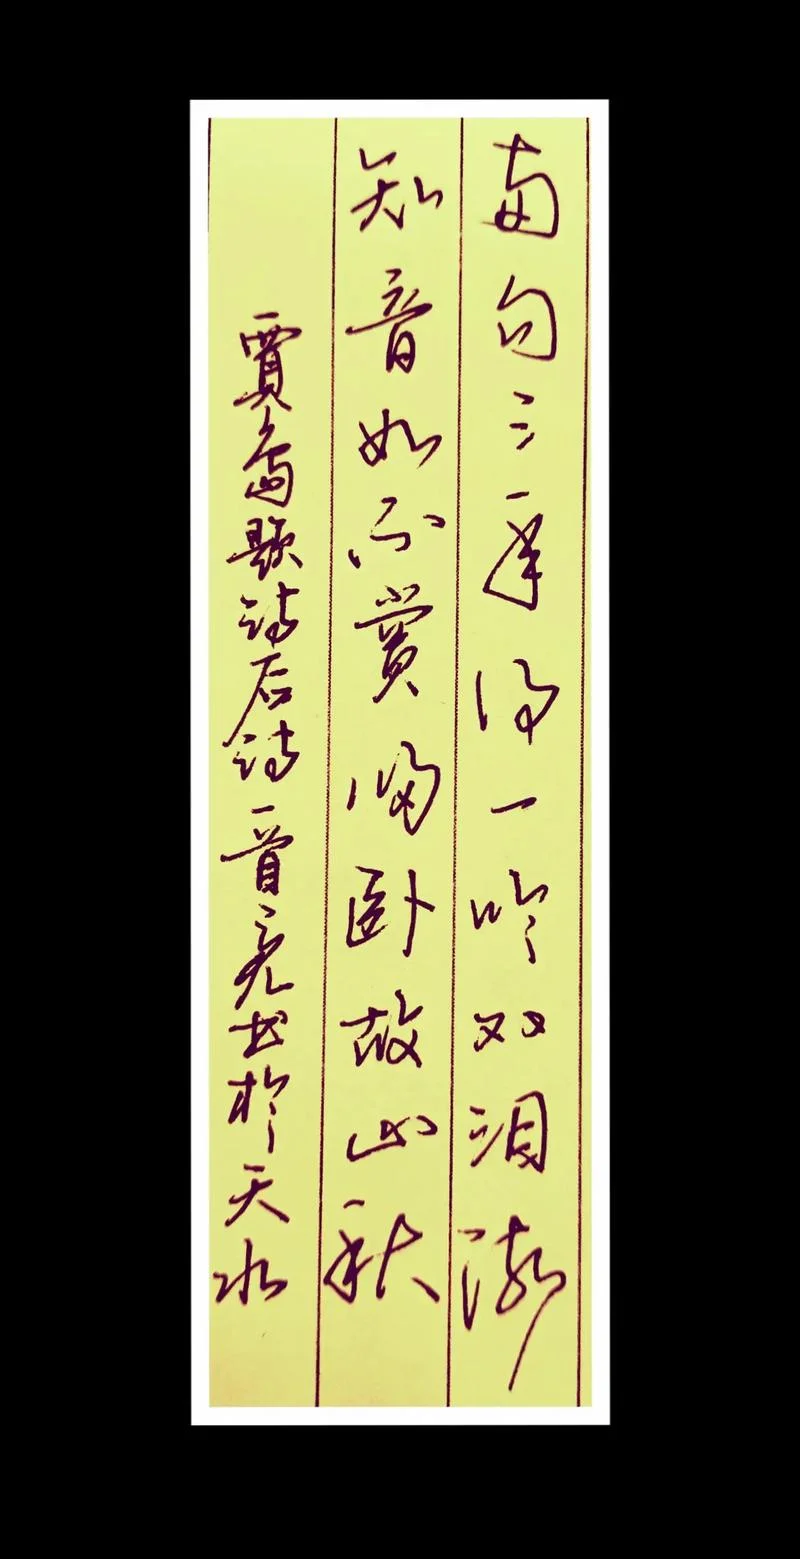 两句三年得一吟双泪流
知音如不赏归卧故山秋
賈島题诗后诗一首亮书於天水